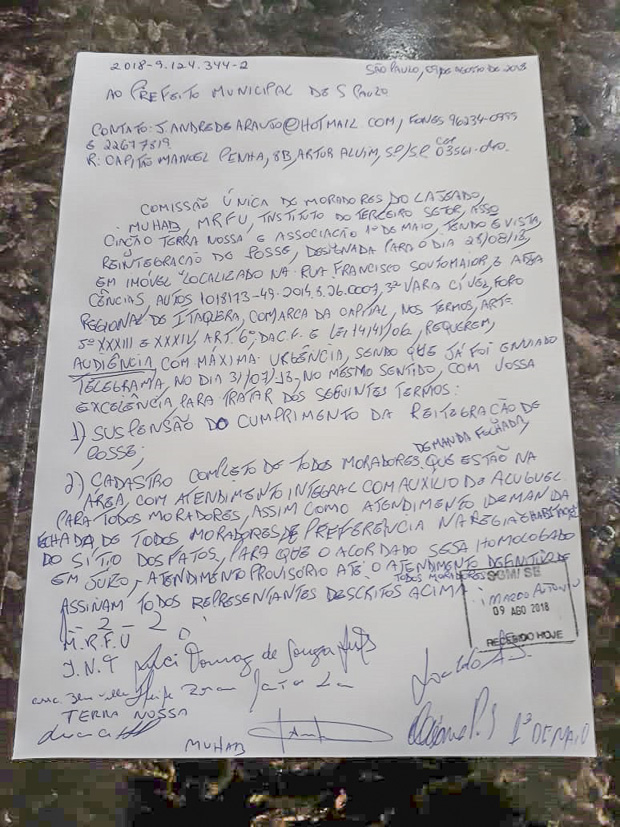 2018-9.124.344-2
SÃO PAULO, 09 DE AGOSTO DE 2018
AO PREFEITO MUNICIPAL DE S PAULO
CONTATO: J.ANDREDEARAUJO@HOTMAIL.COM, FONES 96234-0999
E 22677819
R: CAPITÃO MANOEL PENHA, 8B, ARTUR ALVIM, SP/SP. CEP 03561-040.
COMISSÃO ÚNICA DE MORADORES DO LAJEADO,
MUHAB, MRFU, INSTITUTO DO TERCEIRO SETOR, ASSO
CIAÇÃO TERRA NOSSA, E ASSOCIAÇÃO 1º DE MAIO, TENDO E VISTA
REINTEGRAÇÃO DE POSSE, DESIGNADA PARA O DIA 28/08/18,
EM IMÓVEL LOCALIZADO NA RUA FRANCISCO SOUTOMAIOR, E ADJA
CÊNCIAS, AUTOS 1018173-49.2014.8.26.0007, 3ª VARA CÍVEL, FORO
REGIONAL DE ITAQUERA, COMARCA DA CAPITAL, NOS TERMOS, ARTº
5º XXXIII E XXXIV, ART. 6º DA C.F. E LEI 14141/06, REQUEREM,
AUDIÊNCIA, COM MÁXIMA URGÊNCIA, SENDO QUE JÁ FOI ENVIADO
TELEGRAMA, NO DIA 31/07/18, NO MESMO SENTIDO, COM VOSSA
EXCELÊNCIA PARA TRATAR DOS SEGUINTES TERMOS:
1) SUSPENSÃO DO CUMPRIMENTO DA REITEGRAÇÃO DE
POSSE;
DEMANDA FECHADA,
2) CADASTRO COMPLETO DE TODOS MORADORES, QUE ESTÃO NA
ÁREA, COM ATENDIMENTO INTEGRAL COM AUXILIO DO ALUGUEL
PARA TODOS MORADORES, ASSIM COMO ATENDIMENTO DEMANDA
FECHADA DE TODOS MORADORES, DE PREFERÊNCIA NA REGIÃO
DO SÍTIO DOS FATOS, PARA QUE O ACORDADO SEJA HOMOLOGADO
EM JUÍZO, ATENDIMENTO PROVISÓRIO ATÉ O ATENDIMENTO DEFINITIVO DE
TODOS MORADORES
ASSINAM TODOS REPRESENTANTES DESCRITOS ACIMA:
SGM/SE
MARCO ANTONIO
09 AGO 2018
RECEBIDO HOJE
M.R.F.U
I.N.T de Souza
TERRA NOSSA
MUHAB
1º DE MAIO